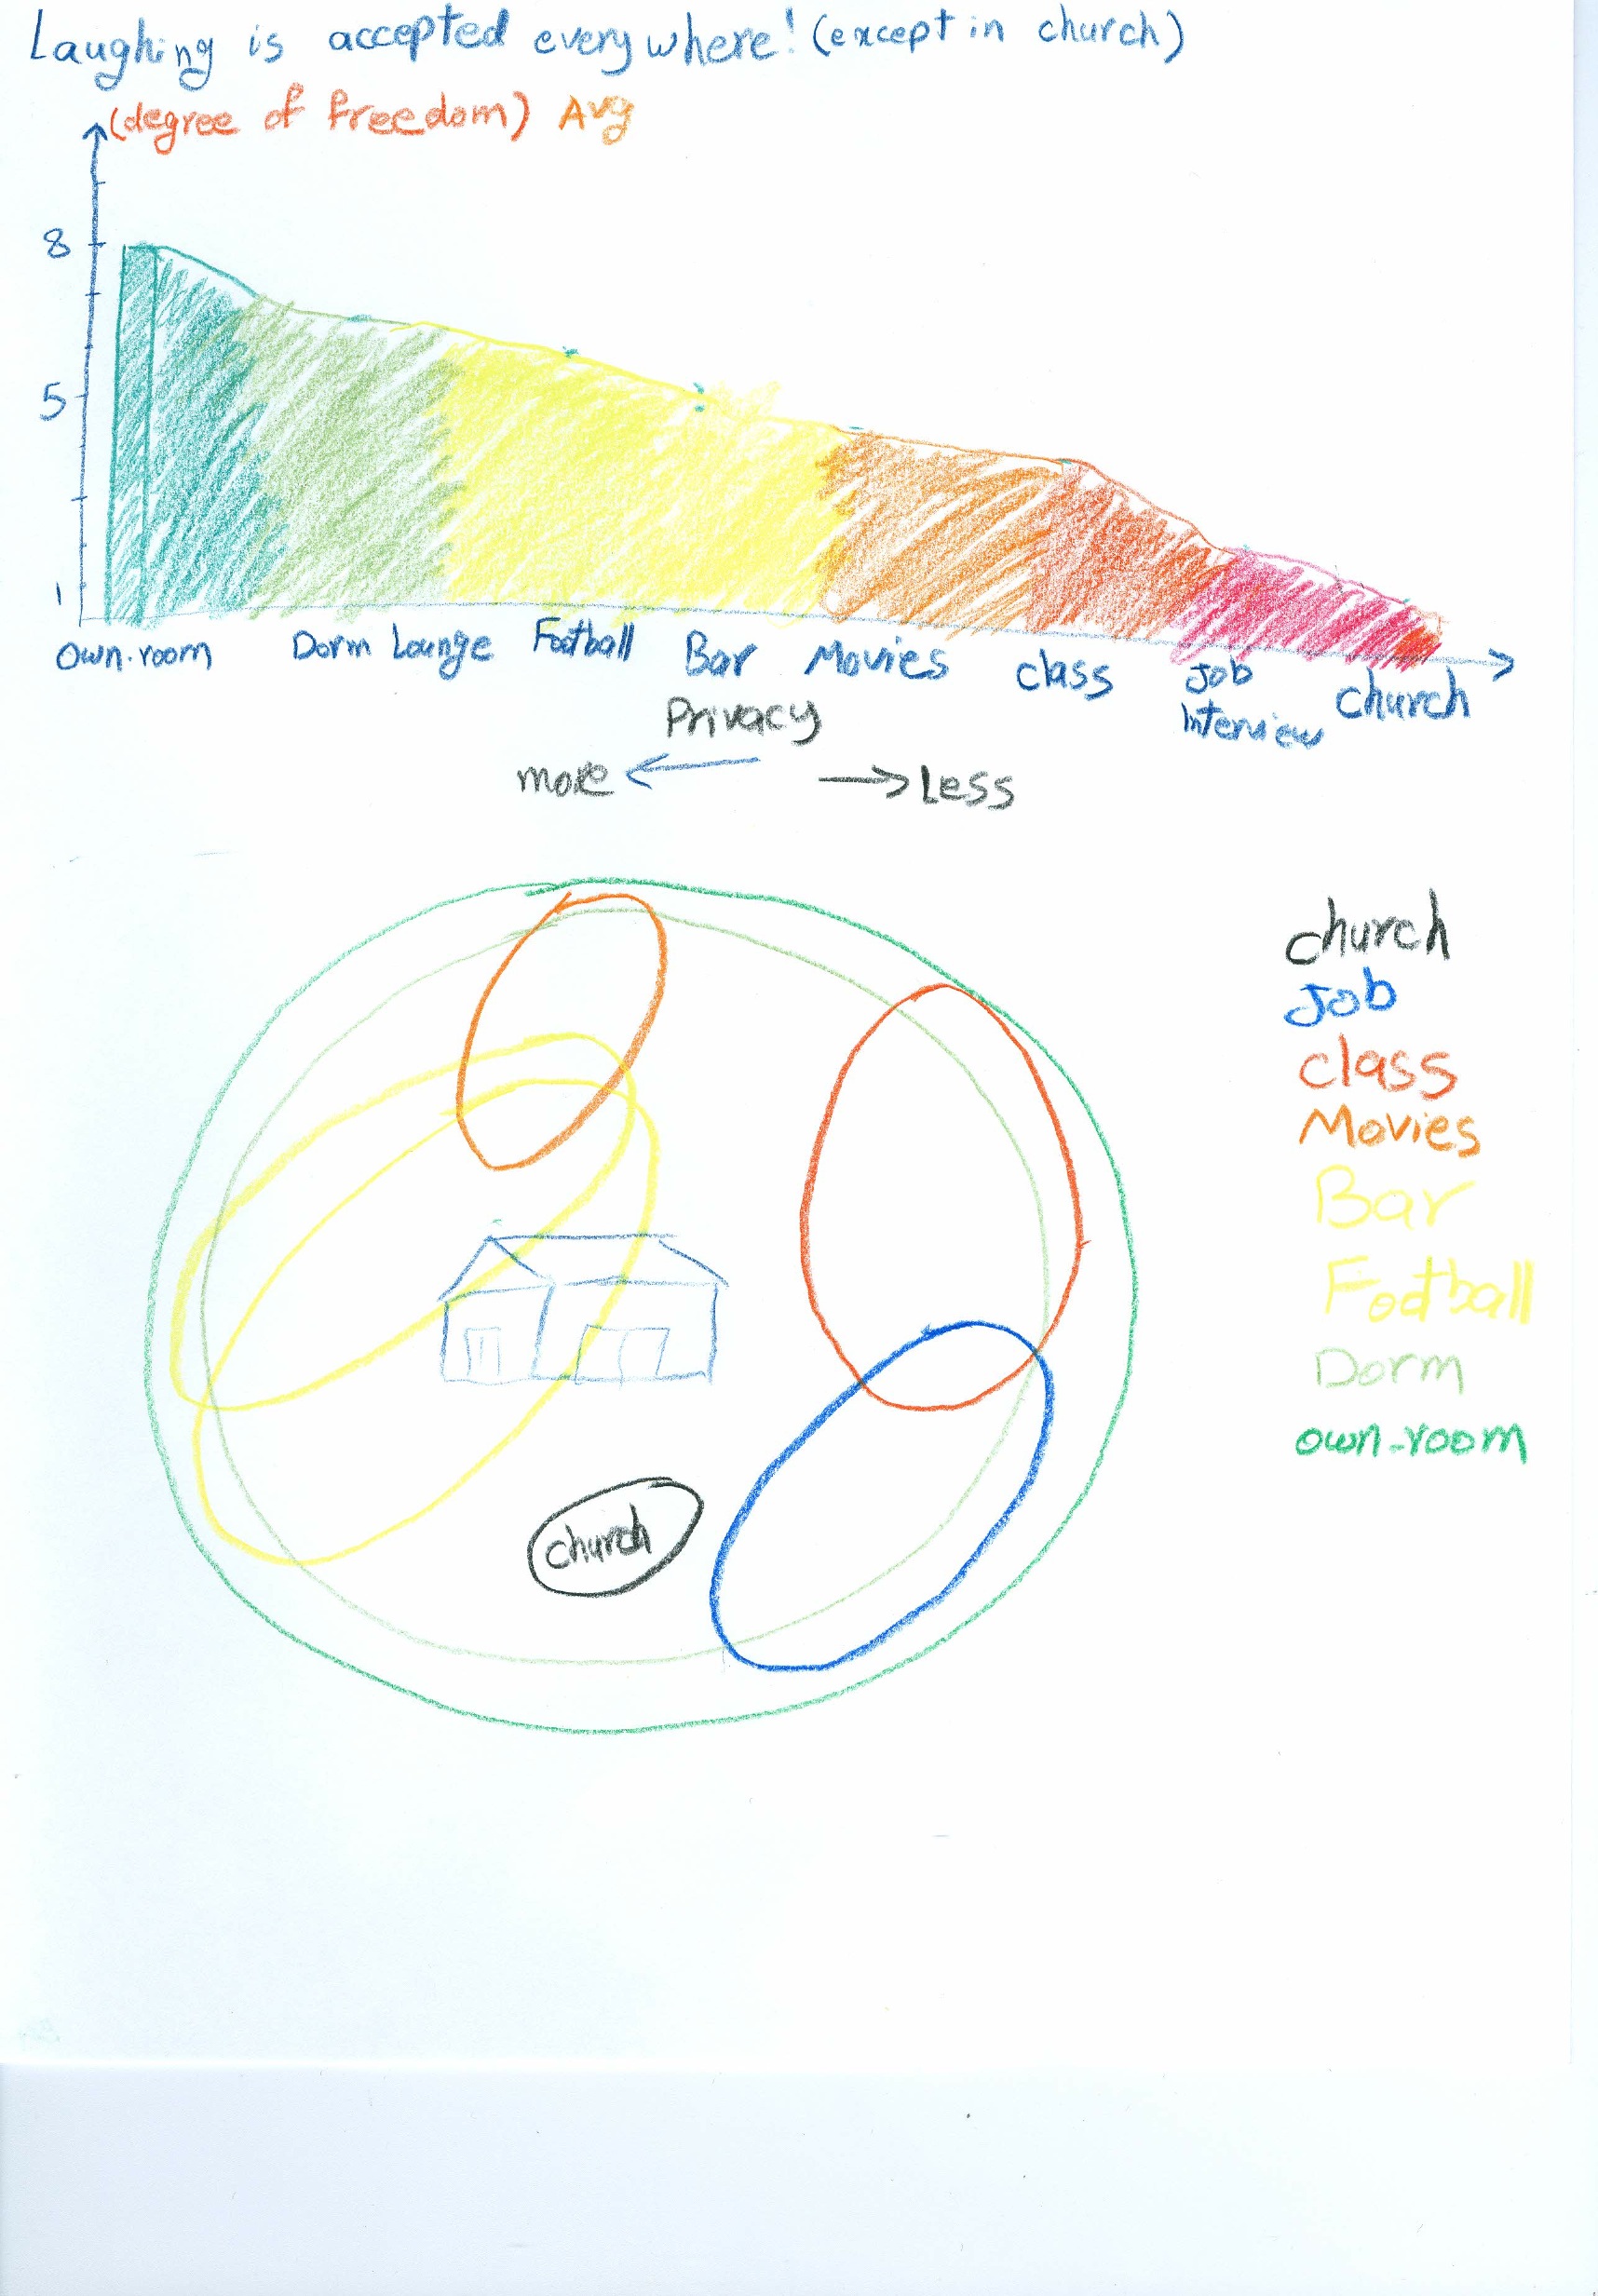 Laughing is accepted everywhere! (except in church)
(degree of freedom) Avg
8
5
1
Own-room Dorm Lounge Football Bar Movies class Job Interview church
Privacy
more Less
church
Job
class
Movies
Bar
Football
Dorm
own-room
church